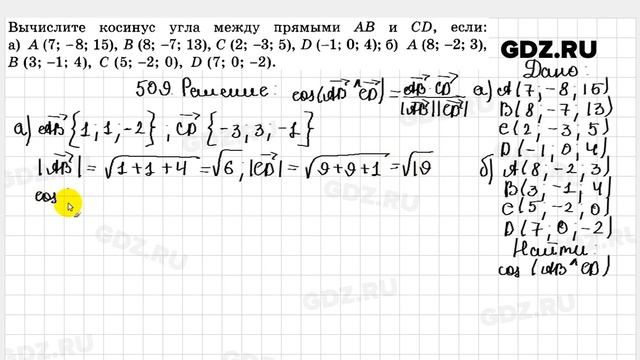 Вычислите косинус угла между прямыми AB и CD, если:
а) A (7; −8; 15), B (8; −7; 13), C (2; −3; 5), D (−1; 0; 4); б) A (8; −2; 3),
B (3; −1; 4), C (5; −2; 0), D (7; 0; −2).
GDZ.RU
509. Решение: cos(AB^CD) = AB·CD / |AB||CD|
а) AB {1, 1, −2}, CD {−3, 3, −1}
|AB| = √1+1+4 = √6; |CD| = √9+9+1 = √19
cos
Дано:
а) A(7; −8; 15)
B(8; −7; 13)
C(2; −3; 5)
D(−1; 0; 4)
б) A(8; −2; 3)
B(3; −1; 4)
C(5; −2; 0)
D(7; 0; −2)
Найти:
cos(AB^CD)